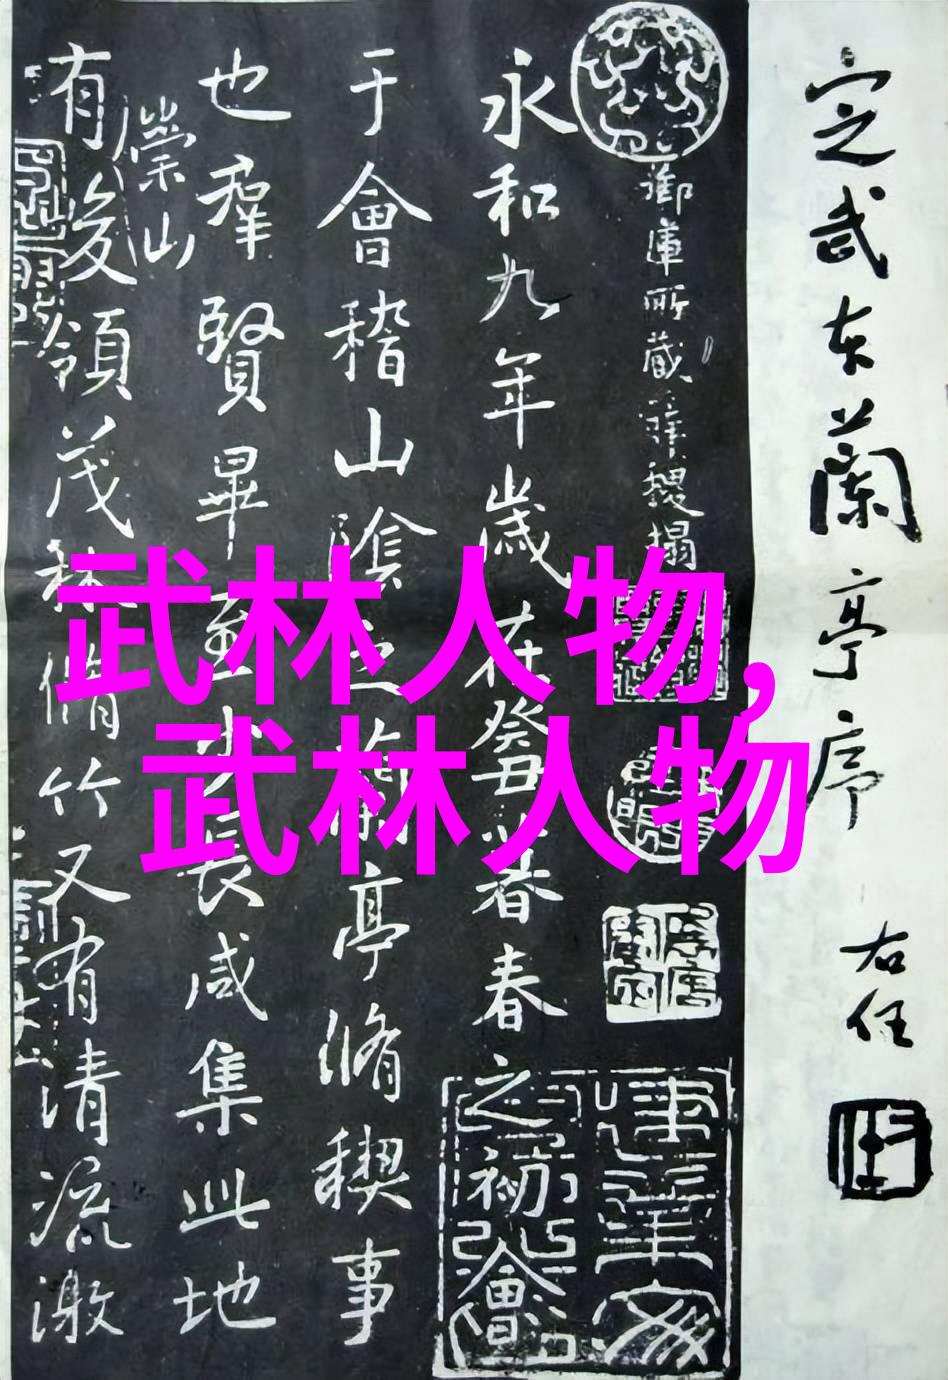 定武本蘭亭序
右任
御庫所藏
永和九年歲在癸丑暮春春之初會
于會稽山陰之蘭亭脩稧事
也羣賢畢至少長咸集此地
崇山
有峻領茂林脩竹又有清流激
武林人物,
武林人物